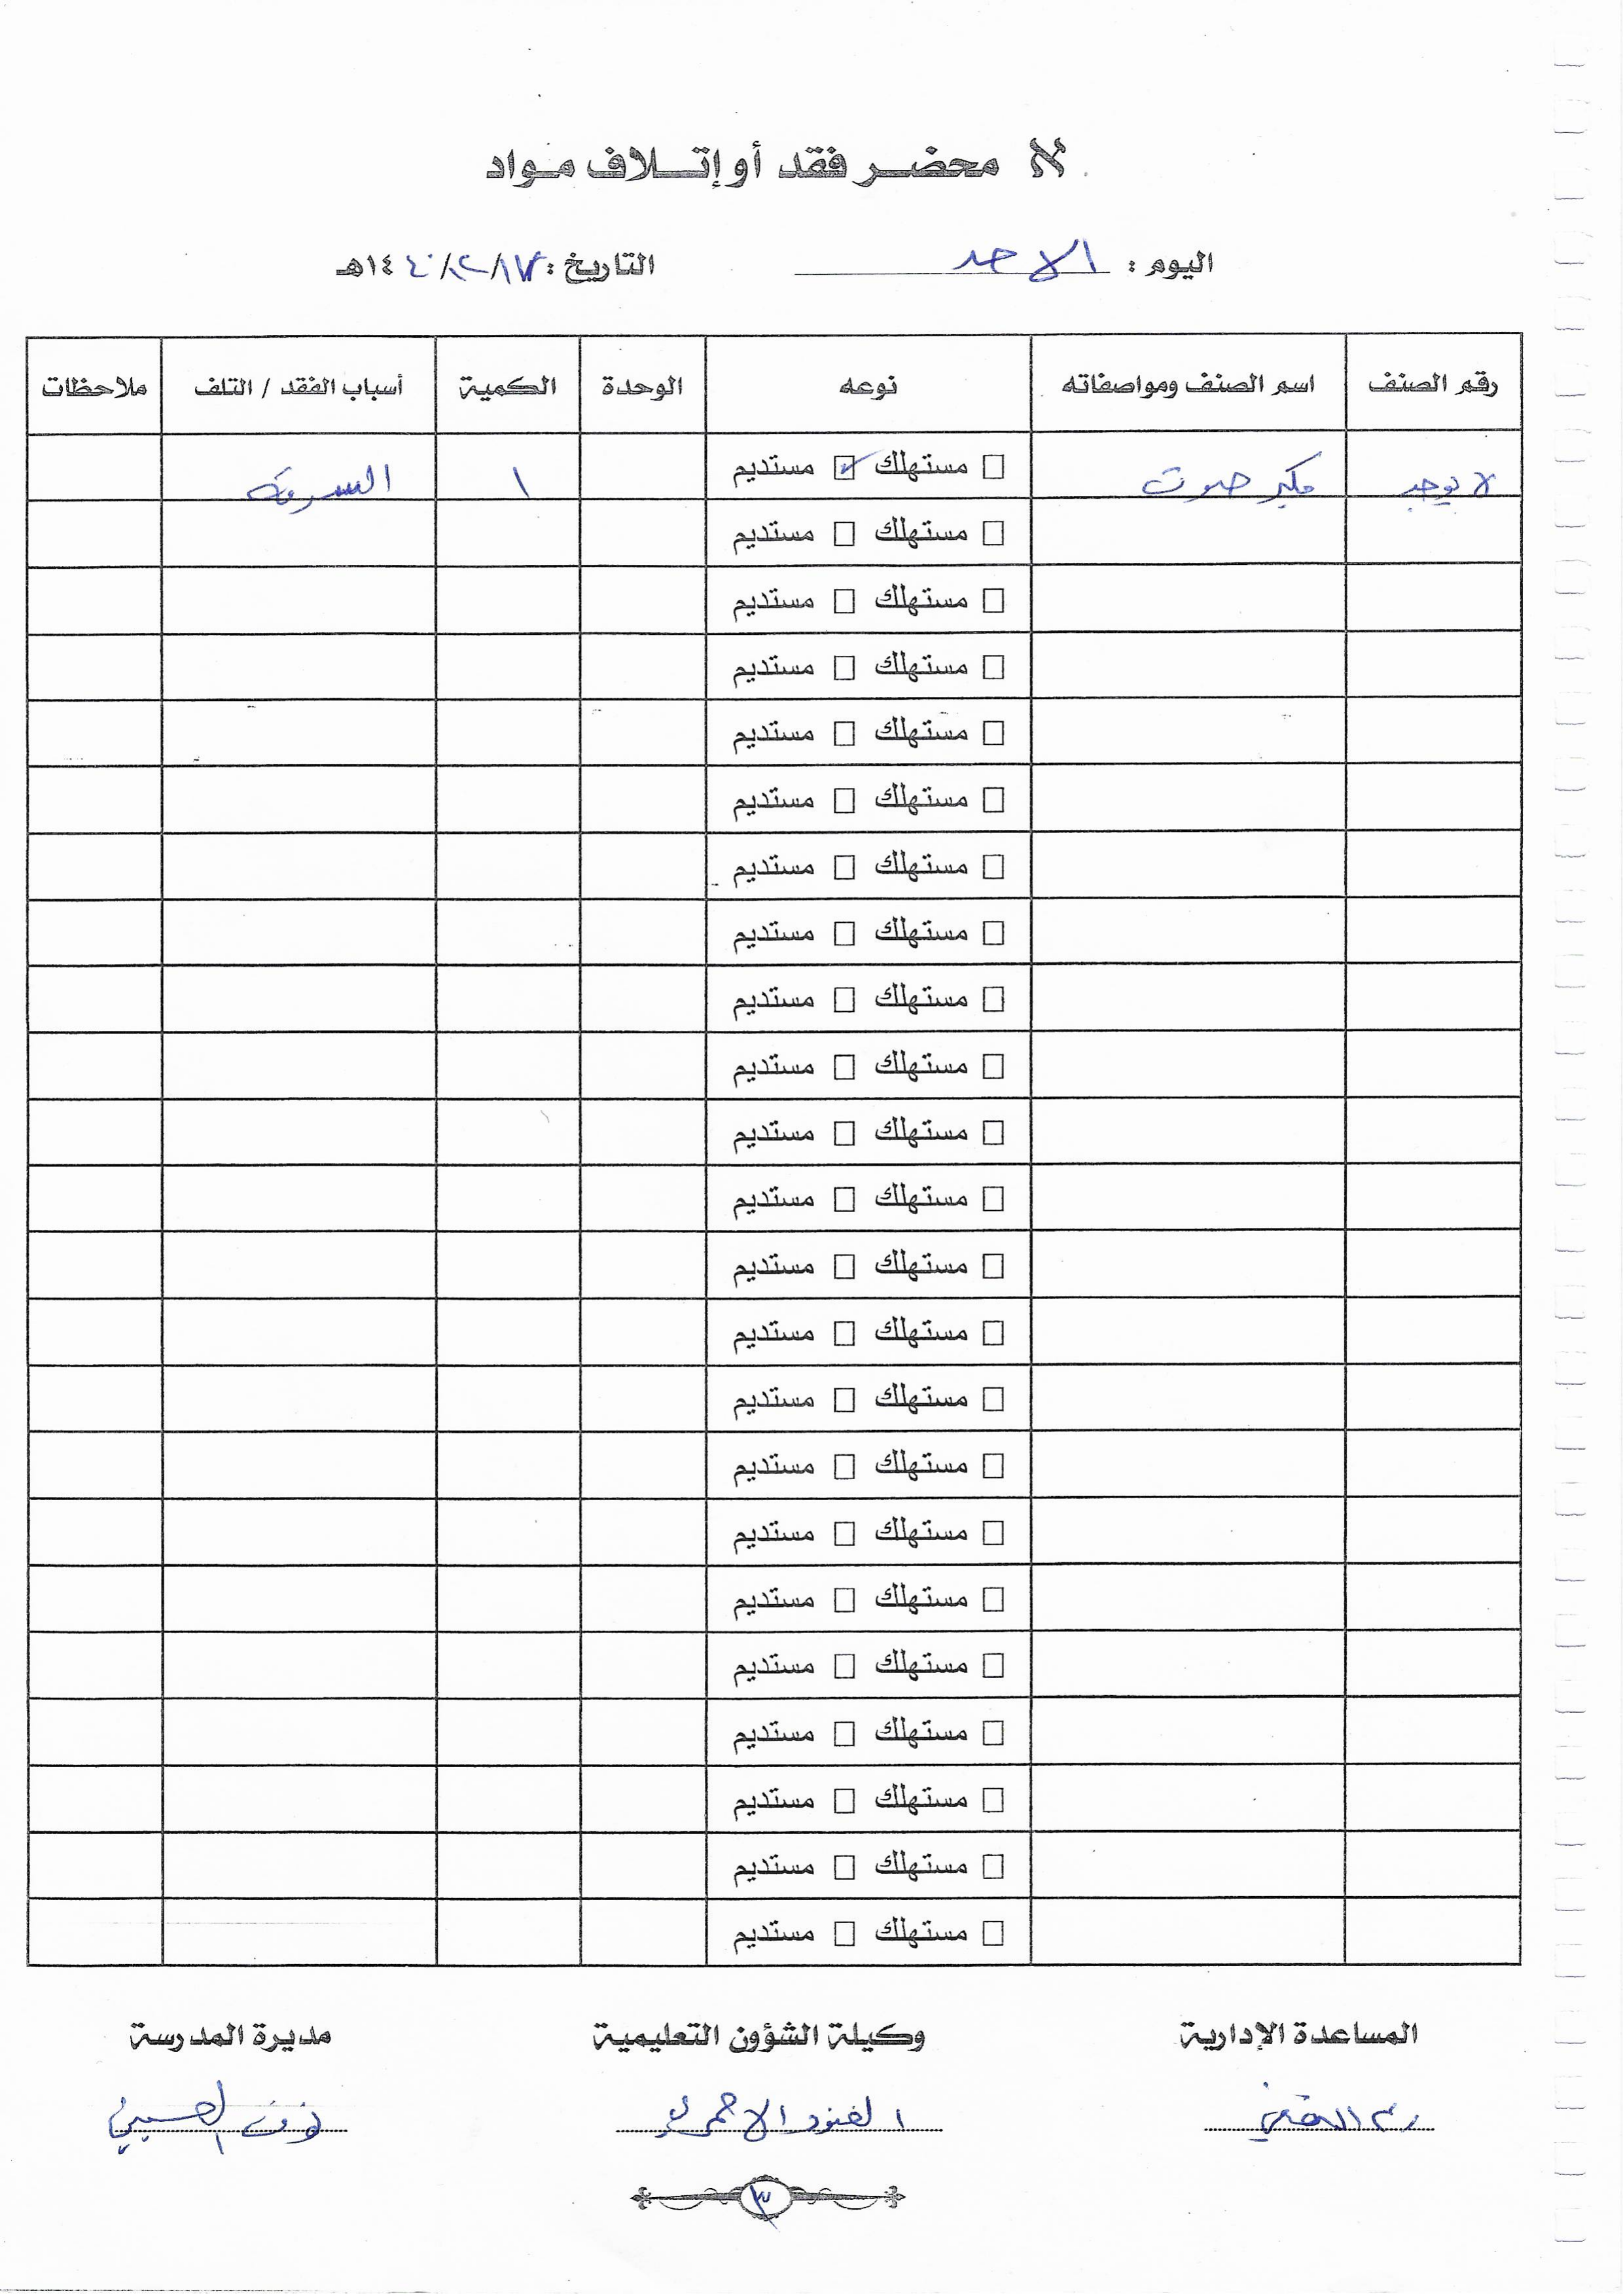 محضر فقد أو إتلاف مواد
اليوم : الاحد التاريخ : ١٧/١٢/١٤٤٠هـ
رقم الصنف اسم الصنف ومواصفاته نوعه الوحدة الكمية أسباب الفقد / التلف ملاحظات
لا يوجد مكبر صوت □ مستهلك ☑ مستديم ١ السرقة
□ مستهلك □ مستديم
□ مستهلك □ مستديم
□ مستهلك □ مستديم
□ مستهلك □ مستديم
□ مستهلك □ مستديم
□ مستهلك □ مستديم
□ مستهلك □ مستديم
□ مستهلك □ مستديم
□ مستهلك □ مستديم
□ مستهلك □ مستديم
□ مستهلك □ مستديم
□ مستهلك □ مستديم
□ مستهلك □ مستديم
□ مستهلك □ مستديم
□ مستهلك □ مستديم
□ مستهلك □ مستديم
□ مستهلك □ مستديم
□ مستهلك □ مستديم
□ مستهلك □ مستديم
□ مستهلك □ مستديم
□ مستهلك □ مستديم
□ مستهلك □ مستديم
المساعدة الإدارية وكيلة الشؤون التعليمية مديرة المدرسة
٣